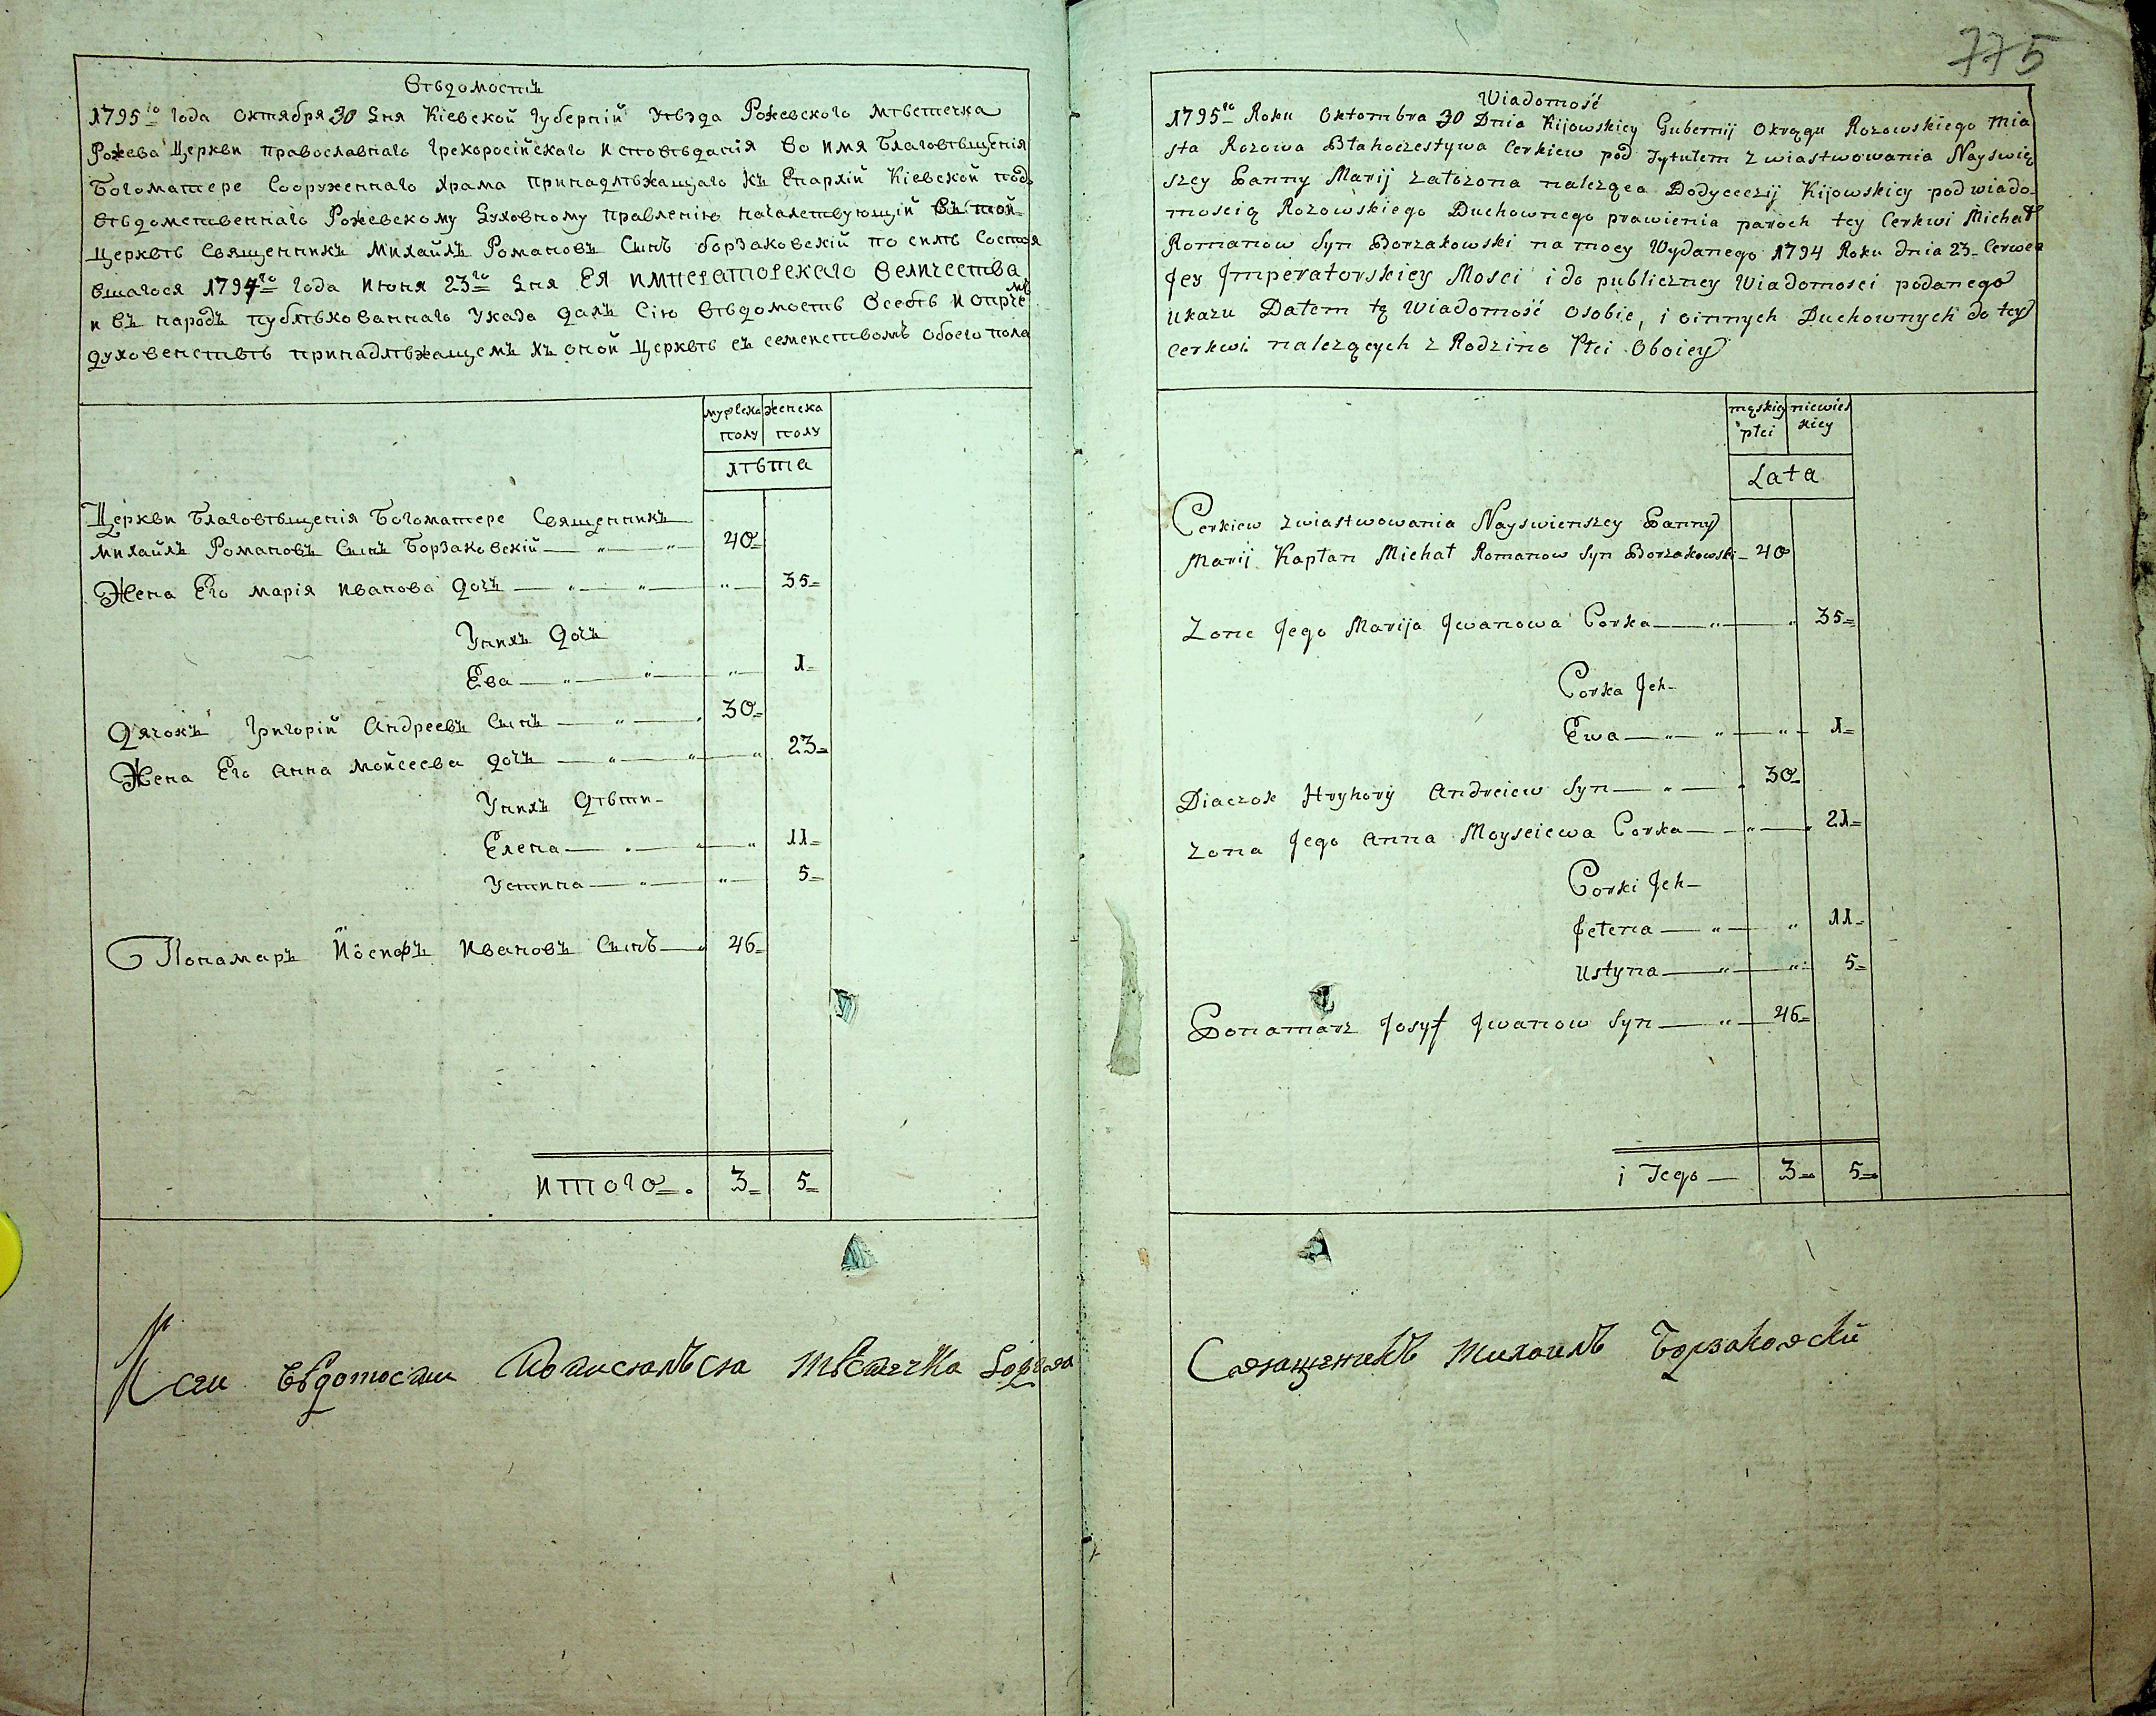 Вѣдомость
1795го Года Октября 30 дня Кіевской Губерніи Уѣзда Рожевского мѣстечка
Рожева Церкви православнаго Грекоросійскаго исповѣданія во имя Благовѣщенія
Богоматере Сооруженнаго Храма принадлѣжащаго къ Епархіи Кіевской подъ
вѣдомственнаго Рожевскому Духовному правленію началствующій въ той
Церквѣ Священникъ Михайлъ Романовъ Сынъ борзаковскій по силѣ Состоя
вшагося 1794го Года Июня 23го дня ЕЯ ИМПЕРАТОРСКАГО Величества
и въ народъ публѣкованнаго Указа далъ Сію вѣдомость о себѣ и о прчемъ
духовенствѣ принадлѣжащемъ къ оной Церквѣ съ семенствомъ обоего пола
мужеска женска
полу полу
лѣта
Церкви Благовѣщенія Богоматере Священникъ
Михайлъ Романовъ Сынъ Борзаковскій 40
Жена Его Марія Иванова дочъ 35
У нихъ дочъ
Ева 1
Дячокъ Григорій Андреевъ Сынъ 30
Жена Его Анна Мойсеева дочъ 23
У нихъ дѣти
Елена 11
Устина 5
Понамаръ Иосифъ Ивановъ Сынъ 46
Итого 3 5
К сеи вѣдомости подписалъся мѣстечка
775
Wiadomość
1795go Roku Oktombra 30 Dnia Kijowskiey Gubernij Okręgu Rozowskiego mia
sta Rozowa Błahoczestywa Cerkiew pod Tytułem Zwiastwowania Nayswię
szey Panny Marij załozona naleząca Do Dyecezij Kijowskiey pod wiado
moscią Rozowskiego Duchownego prawienia paroch tey Cerkwi Michał
Romanow Syn Borzakowski na mocy Wydanego 1794 Roku dnia 23 Cerwca
Jey Jmperatorskiey Mosci i do publiczney Wiadomosci podanego
Ukazu Dałem tę Wiadomość o sobie, i o innych Duchownych do tey
Cerkwi nalezących z Rodzino Płci Oboiey
męskiey niewies
płci kiey
Lata
Cerkiew Zwiastwowania Nayswienszey Panny
Marij Kapłan Michał Romanow Syn Borzakowski 40
Zone Jego Marija Jwanowa Corka 35
Corka Jch
Ewa 1
Diaczok Hryhory Andreiew Syn 30
Zona Jego Anna Moyseiewa Corka 21
Corki Jch
Jełena 11
Ustyna 5
Ponamarz Josyf Jwanow Syn 46
i Tego 3 5
Священникъ Михаилъ Борзаковски